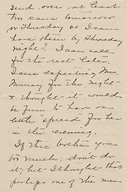 send over at least
two cans tomorrow
or Thursday so I can
have them by Thursday
night? I can call
for the rest later.
I am expecting Mrs.
Murray for the night
& thought it would
be fun to have an
little spread for her
in the evening.
If this bothers you
too much, don't do
it, but I thought that
perhaps one of the men